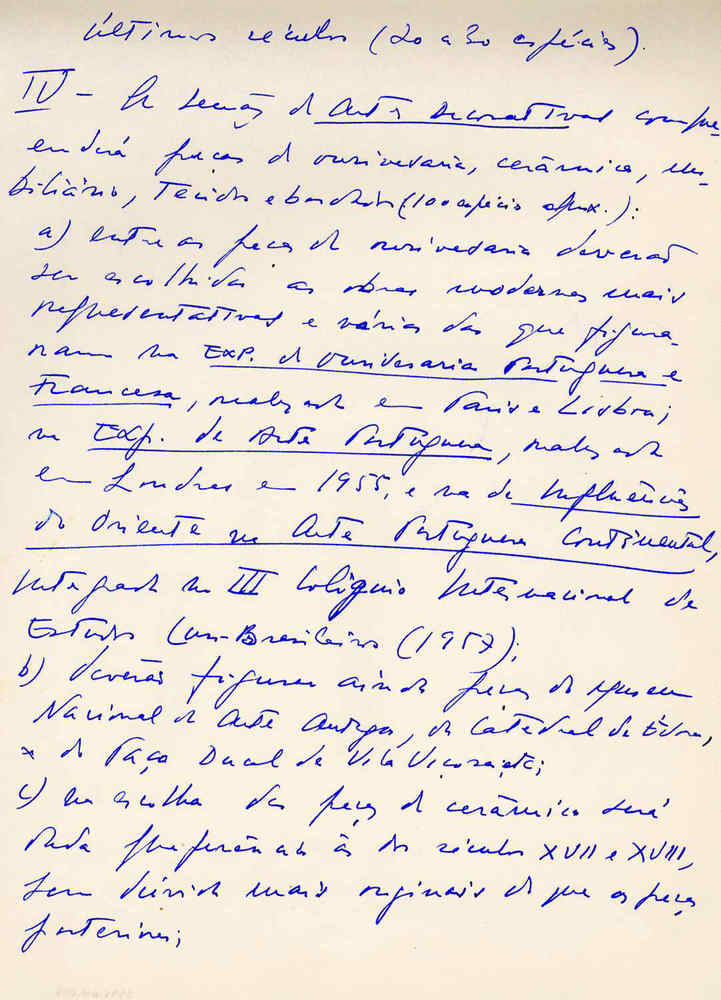 últimos séculos (20 a 30 espécies).
IV – A secção de Artes Decorativas compre-
enderá peças de ourivesaria, cerâmica, mo-
biliário, Tecidos e bordados (100 espécies aprox.):
a) entre as peças de ourivesaria deverão
ser escolhidas as obras modernas mais
representativas e várias das que figura-
ram na Exp. de Ourivesaria Portuguesa e
Francesa, realizada em Paris e Lisboa;
na Exp. de Arte Portuguesa, realizada
em Londres em 1955, e na de Influências
do Oriente na Arte Portuguesa Continental,
integrada no III Colóquio Internacional de
Estudos Luso-Brasileiros (1957);
b) deverão figurar ainda peças do Museu
Nacional de Arte Antiga, da Catedral de Évora,
do Paço Ducal de Vila Viçosa, etc;
c) na escolha das peças de cerâmica será
dada preferência às dos séculos XVII e XVIII,
sem dúvida mais originais do que as peças
posteriores;